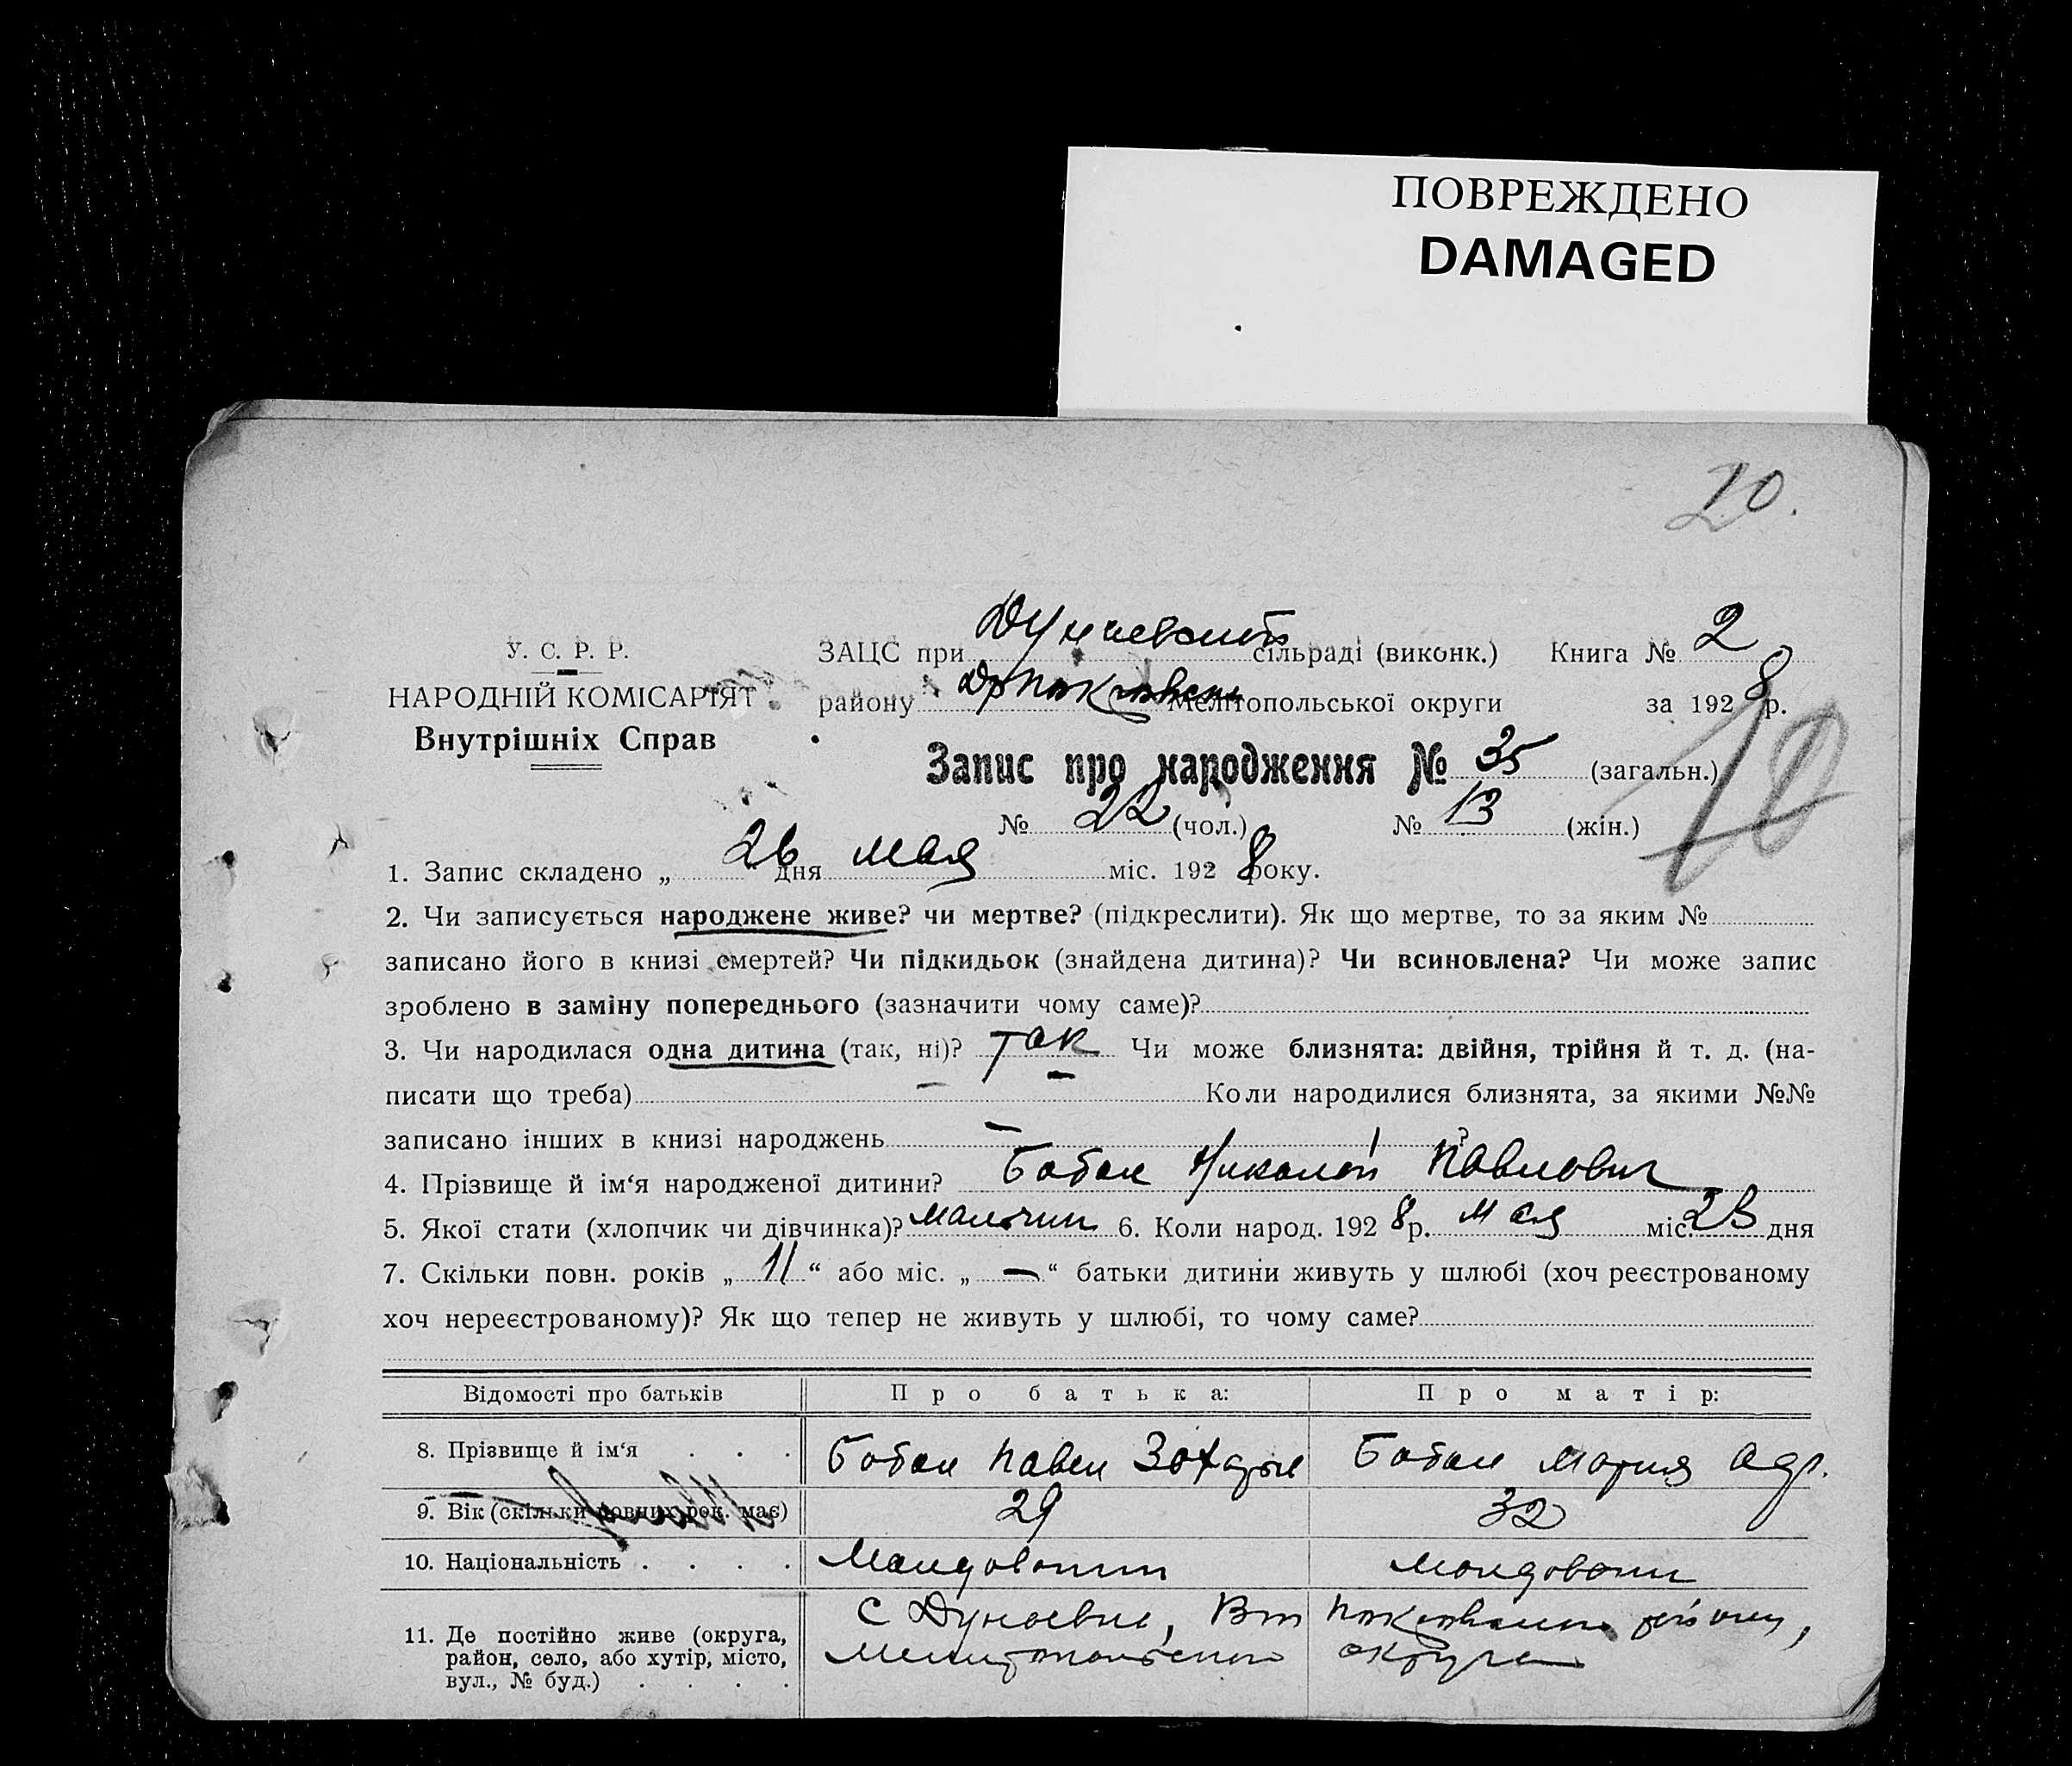 ПОВРЕЖДЕНО
DAMAGED
20.
У. С. Р. Р.
НАРОДНІЙ КОМІСАРІЯТ
Внутрішніх Справ
ЗАЦС при сільраді (виконк.) Книга № 2
району Мелітопольської округи за 1928 р.
10
Запис про народження № 35 (загальн.)
№ 22 (чол.) № 13 (жін.)
1. Запис складено „ 26 " дня мая міс. 1928 року.
2. Чи записується народжене живе? чи мертве? (підкреслити). Як що мертве, то за яким №
записано його в книзі смертей? Чи підкидьок (знайдена дитина)? Чи всиновлена? Чи може запис
зроблено в заміну попереднього (зазначити чому саме)?
3. Чи народилася одна дитина (так, ні)? так Чи може близнята: двійня, трійня й т. д. (на-
писати що треба) — — Коли народилися близнята, за якими №№
записано інших в книзі народжень — ?
4. Прізвище й ім‘я народженої дитини? Бабак Николай Павлович
5. Якої стати (хлопчик чи дівчинка)? 6. Коли народ. 1928 р. мая міс. 23 дня
7. Скільки повн. років „ 11 “ або міс. „ — “ батьки дитини живуть у шлюбі (хоч реєстрованому
хоч нереєстрованому)? Як що тепер не живуть у шлюбі, то чому саме?
Відомості про батьків Про батька: Про матір:
8. Прізвище й ім‘я . . . Павел Мария
9. Вік (скільки повних рок. має) 29 32
10. Національність . . . . Молдованин
11. Де постійно живе (округа,
район, село, або хутір, місто,
вул., № буд.) . . . .
с округа